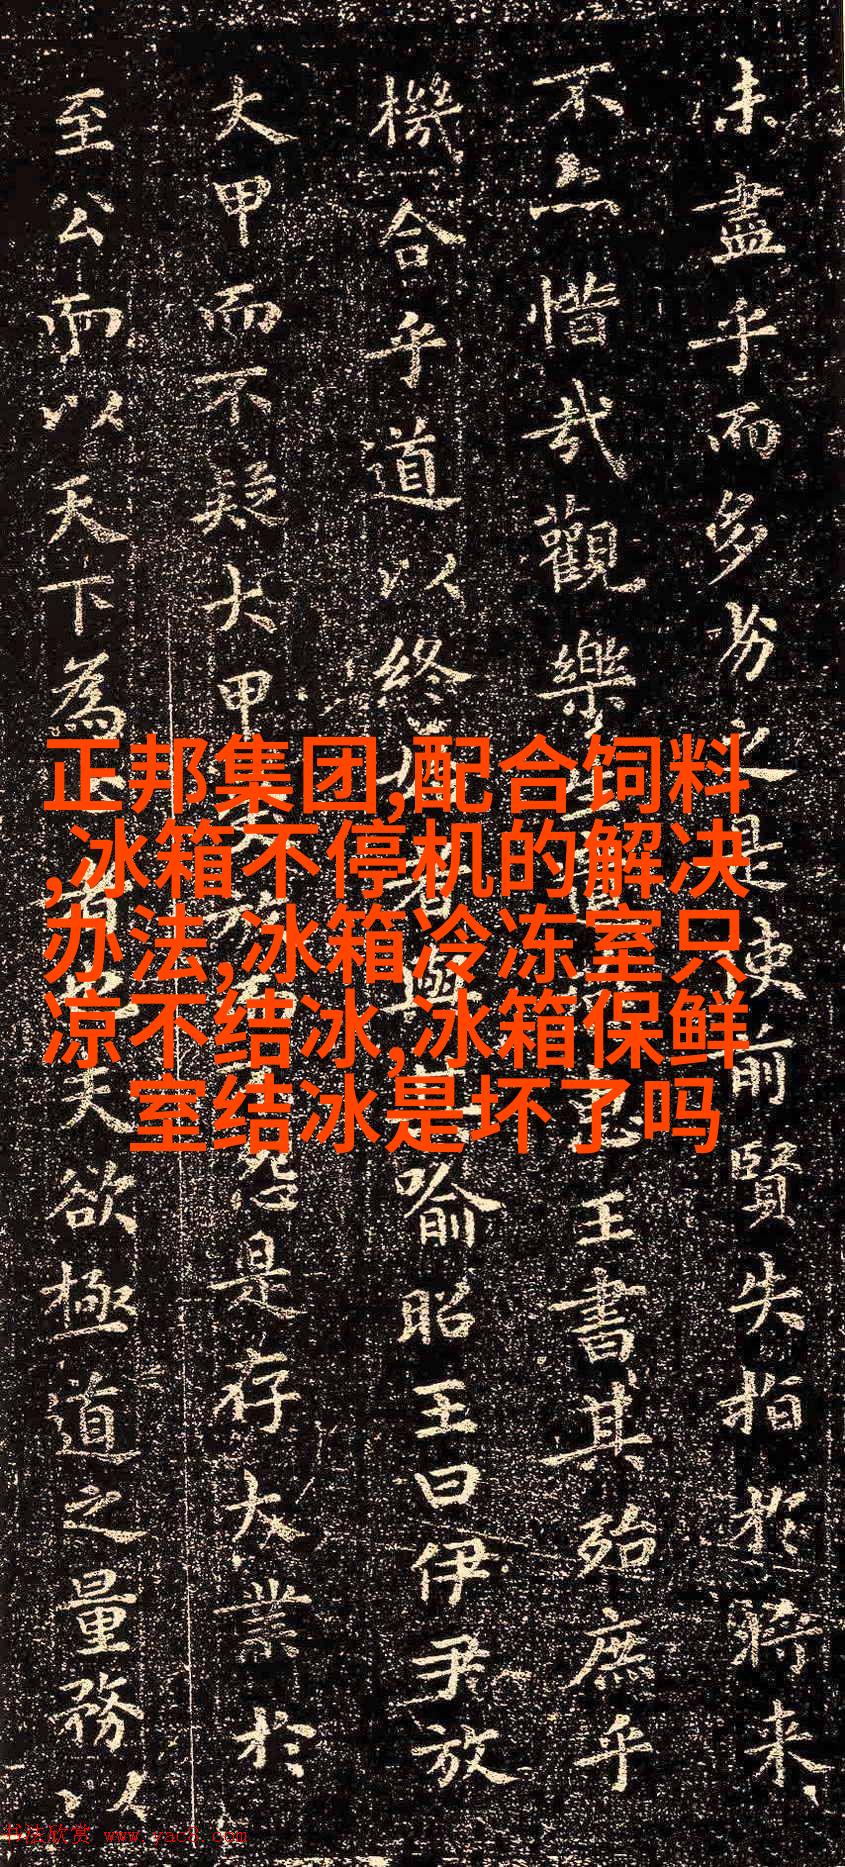 未盡乎而多劣之是使前賢失指於將来
不亦惜哉觀樂生惠王書其殆庶乎
機合乎道以終者與喻昭王曰伊尹放
大甲而不疑大甲放怨是存大業於
至公而以天下為者夫欲極道之量務以
正邦集团,配合饲料
,冰箱不停机的解决
办法,冰箱冷冻室只
凉不结冰,冰箱保鲜
室结冰是坏了吗
书法欣赏 www.yac8.com